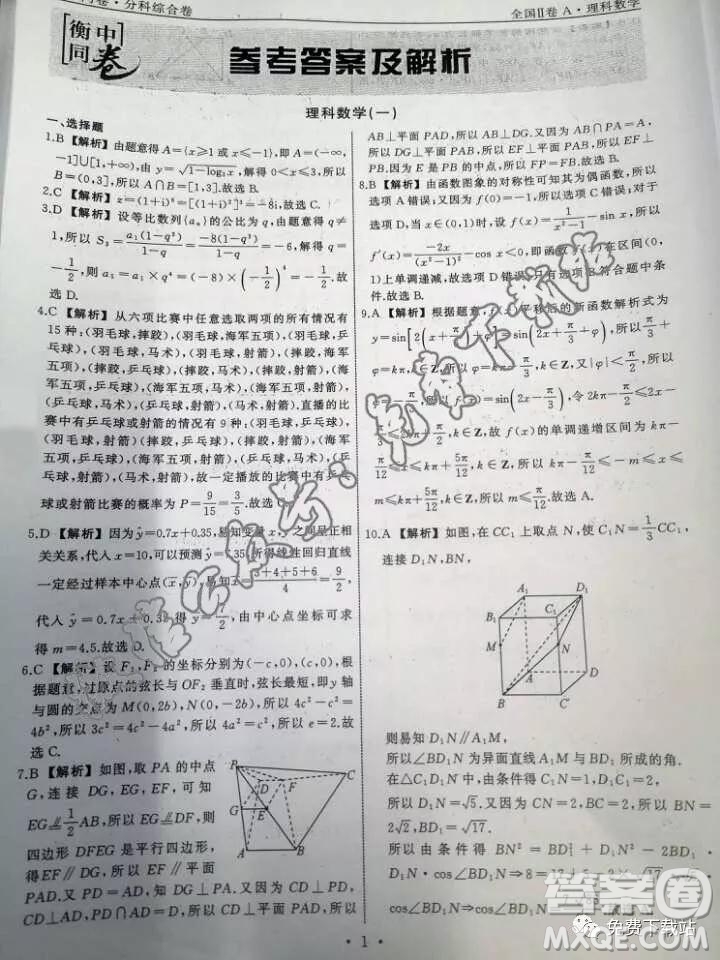 同卷·分科综合卷
全国Ⅱ卷A·理科数学
衡中
同卷
参考答案及解析
理科数学(一)
一、选择题
1.B 【解析】由题意得A={x≥1或x≤-1},即A=(-∞,
-1]∪[1,+∞),由y=√(1-log₃x),解得0<x≤3,所以
B=(0,3],所以A∩B=[1,3].故选B.
2.C 【解析】z=(1+i)⁶=[(1+i)²]³=-8i,故选C.
3.D 【解析】设等比数列{aₙ}的公比为q,由题意得q≠
1,所以S₃=a₁(1-q³)/(1-q)=-8(1-q³)/(1-q)=-6,解得q=-
1/2,则a₅=a₁×q⁴=(-8)×(-1/2)⁴=-1/2.故
选D.
4.C 【解析】从六项比赛中任意选取两项的所有情况有
15种:(羽毛球,摔跤),(羽毛球,海军五项),(羽毛球,乒
乓球),(羽毛球,马术),(羽毛球,射箭),(摔跤,海军
五项),(摔跤,乒乓球),(摔跤,马术),(摔跤,射箭),(海
军五项,乒乓球),(海军五项,马术),(海军五项,射箭),
(乒乓球,马术),(乒乓球,射箭),(马术,射箭),直播的比
赛中有乒乓球或射箭的情况有9种:(羽毛球,乒乓
球),(羽毛球,射箭),(摔跤,乒乓球),(摔跤,射箭),
(海军五项,乒乓球),(海军五项,射箭),(乒乓球,马
术),(乒乓球,射箭),(马术,射箭),故一定播放的比赛有乒乓
球或射箭比赛的概率为P=9/15=3/5.故选C.
5.D 【解析】因为ŷ=0.7x+0.35,易知变量x,y之间呈正相
关关系,代入x=10,可以预测ŷ=7.35,所得线性回归直线
一定经过样本中心点(x̄,ȳ),易知x̄=(3+4+5+6)/4=9/2,
代入ŷ=0.7x+0.35得ȳ=7/2,由中心点坐标可求
得m=4.5.故选D.
6.C 【解析】设F₁,F₂的坐标分别为(-c,0),(c,0),根
据题意,过原点的弦长与OF₂垂直时,弦长最短,即y轴
与圆的交点为M(0,2b),N(0,-2b),所以4c²-c²=
4b²,所以3c²=4c²-4a²,所以4a²=c²,所以e=2.故
选C.
7.B 【解析】如图,取PA的中点
G,连接DG,EG,EF,可知
EG∥1/2AB,所以EG∥DF,所以
四边形DFEG是平行四边形,
所以EF∥DG,所以EF∥平面
PAD.又因为CD⊥PD,
CD⊥AD,PD∩AD=D,所以CD⊥平面PAD,所以
P
C
D
F
G
E
A
B
AB⊥平面PAD,所以AB⊥DG.又因为AB∩PA=
A,所以DG⊥平面PAB,所以EF⊥平面PAB,所以EF⊥
PB.因为E是PB的中点,所以FP=FB.故选B.
8.B 【解析】由函数图象的对称性可知其为偶函数,所以
选项A错误;又因为f(0)=0,所以选项C错误;对于
选项D,当x∈(0,1)时,设f(x)=1/(x²-1)-sin x,所以
f′(x)=-2x/(x²-1)²-cos x<0,即函数f(x)在区间(0,
1)上单调递减,故选项D错误,只有选项B符合题中条
件.故选B.
9.A 【解析】根据题意,f(x)平移后的新函数解析式为
y=sin[2(x+π/6)+φ]=sin(2x+π/3+φ),所以π/3+
φ=kπ,k∈Z,所以φ=kπ-π/3,k∈Z,又|φ|<π/2,所以
φ=-π/3,所以f(x)=sin(2x-π/3),令2kπ-π/2≤2x-
π/3≤2kπ+π/2,k∈Z,故f(x)的单调递增区间为kπ-
π/12≤x≤kπ+5π/12,k∈Z,所以-π/12≤-m≤x≤m≤
kπ+5π/12,k∈Z,所以m≤π/12.故选A.
10.A 【解析】如图,在CC₁上取点N,使C₁N=1/3CC₁,
连接D₁N,BN,
A₁
D₁
B₁
C₁
M
N
A
D
B
C
则易知D₁N∥A₁M,
所以∠BD₁N为异面直线A₁M与BD₁所成的角.
在△C₁D₁N中,由条件得C₁N=1,C₁D₁=2,
所以D₁N=√5.又因为CN=2,BC=2,所以BN=
2√2,BD₁=√17.
所以由条件得BN²=BD₁²+D₁N²-2BD₁·
D₁N·cos∠BD₁N⇒8=
cos∠BD₁N
·1·
答案圈
MXQE.COM
免费下载站